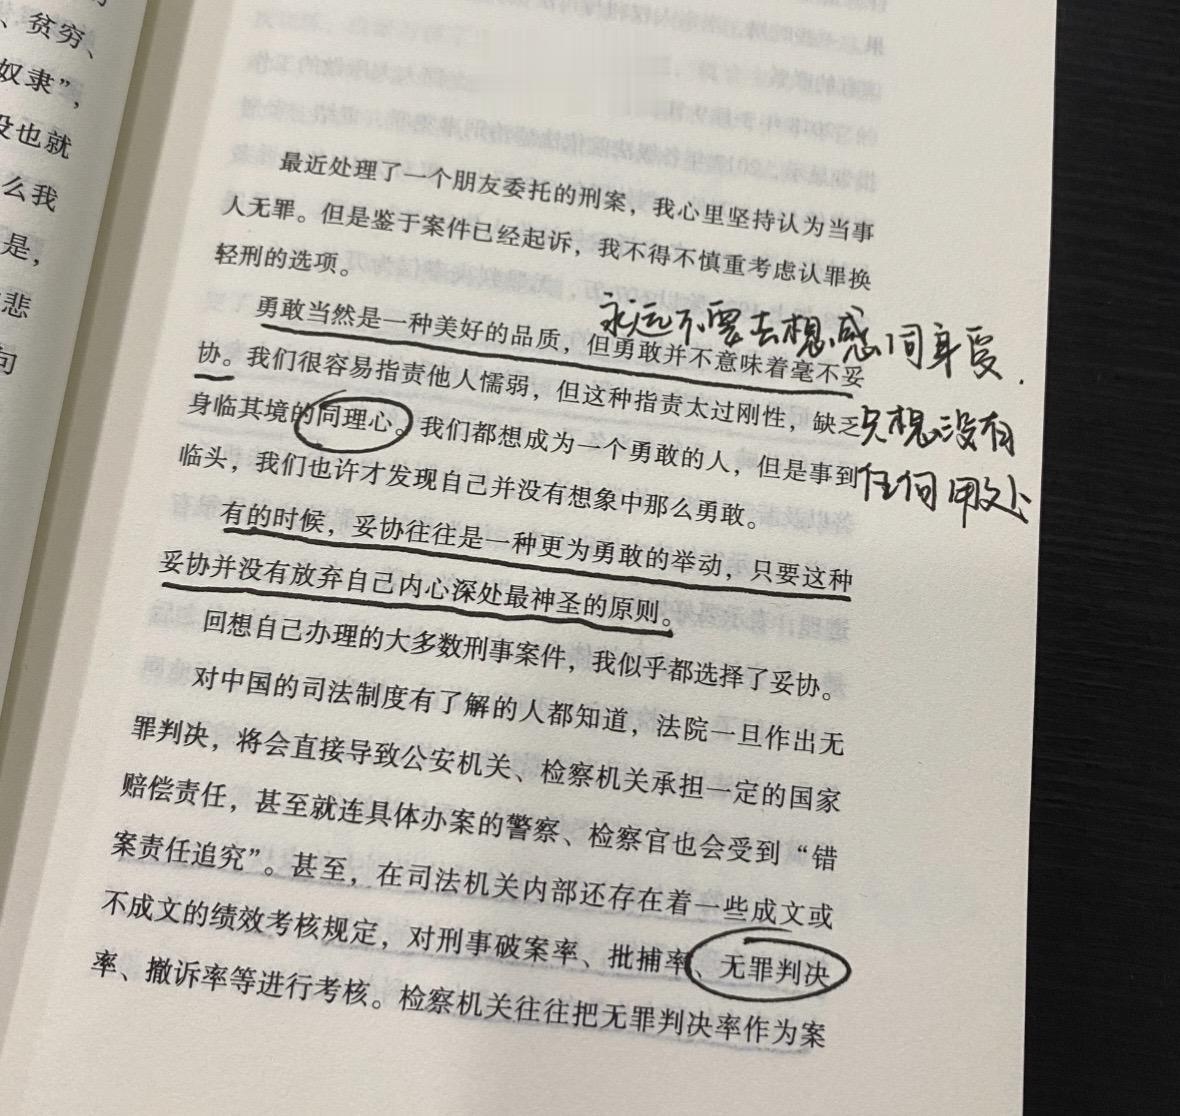 、贫穷、
奴隶”，
没也就
么我
是，
悲
句
最近处理了一个朋友委托的刑案，我心里坚持认为当事
人无罪。但是鉴于案件已经起诉，我不得不慎重考虑认罪换
轻刑的选项。
勇敢当然是一种美好的品质，但勇敢并不意味着毫不妥
协。我们很容易指责他人懦弱，但这种指责太过刚性，缺乏
身临其境的同理心。我们都想成为一个勇敢的人，但是事到
临头，我们也许才发现自己并没有想象中那么勇敢。
有的时候，妥协往往是一种更为勇敢的举动，只要这种
妥协并没有放弃自己内心深处最神圣的原则。
回想自己办理的大多数刑事案件，我似乎都选择了妥协。
对中国的司法制度有了解的人都知道，法院一旦作出无
罪判决，将会直接导致公安机关、检察机关承担一定的国家
赔偿责任，甚至就连具体办案的警察、检察官也会受到“错
案责任追究”。甚至，在司法机关内部还存在着一些成文或
不成文的绩效考核规定，对刑事破案率、批捕率、无罪判决
率、撤诉率等进行考核。检察机关往往把无罪判决率作为案
永远不要去想感同身受.
只想没有
任何用处